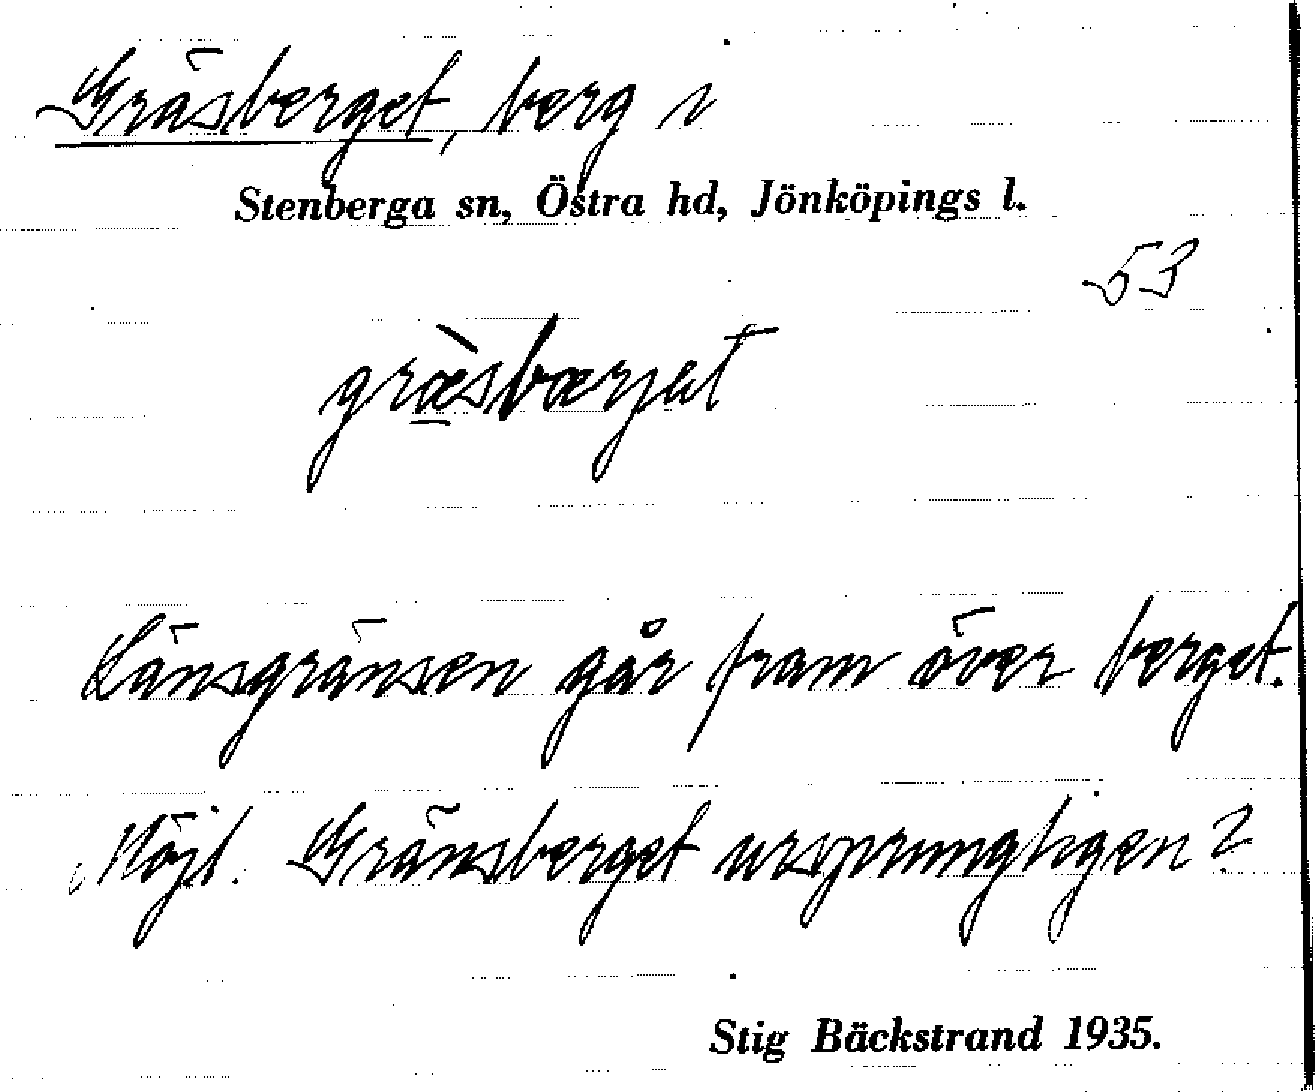 Gräsberget, berg i
Stenberga sn, Östra hd, Jönköpings l.
53
græ̀sbærjet
Länsgränsen går fram över berget.
Möjl. Gränsberget ursprungligen?
Stig Bäckstrand 1935.